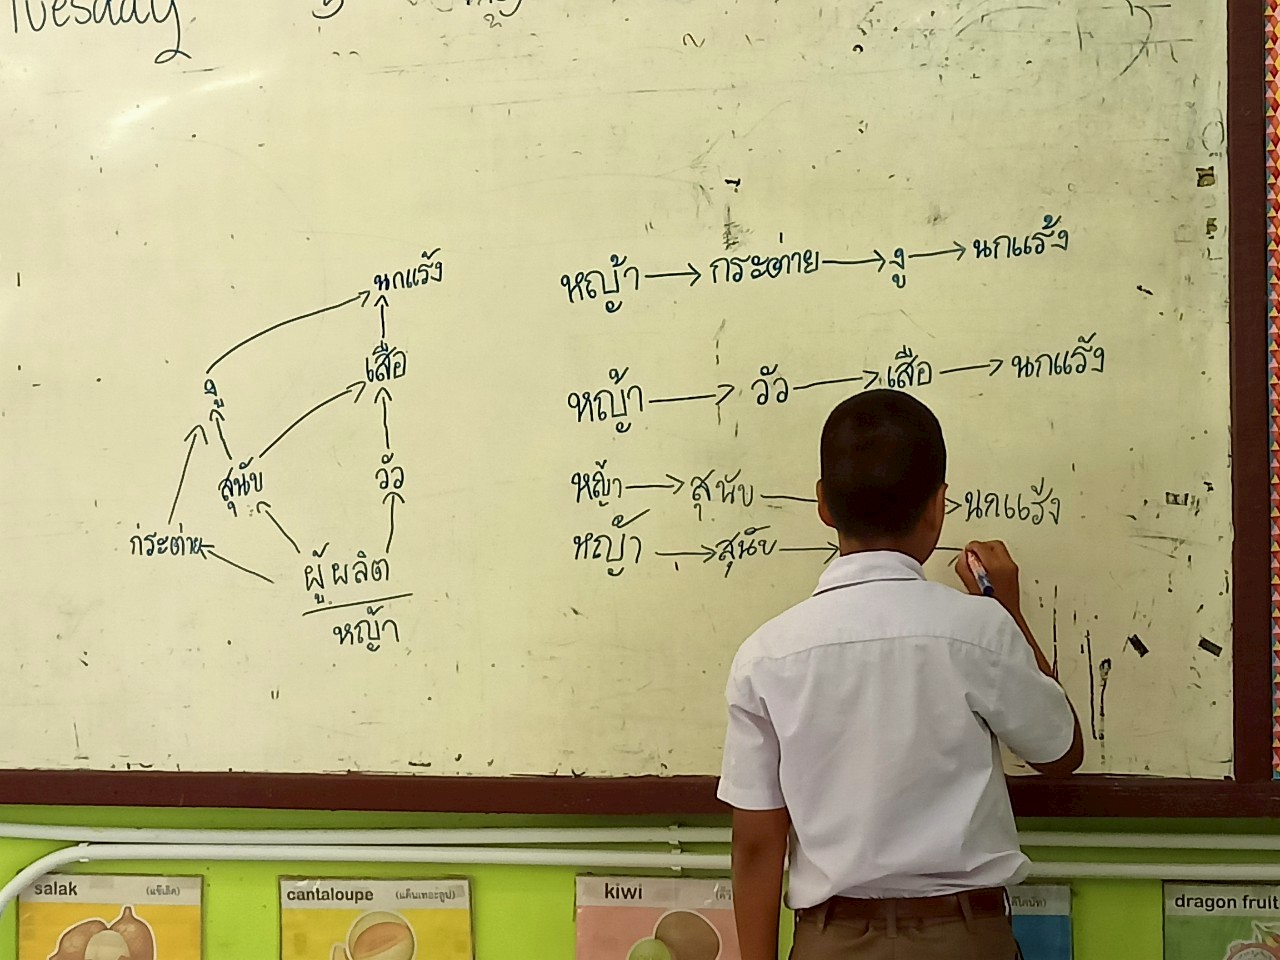 Tuesday
นกแร้ง
เสือ
งู
สุนัข
วัว
กระต่าย
ผู้ผลิต
หญ้า
หญ้า → กระต่าย → งู → นกแร้ง
หญ้า → วัว → เสือ → นกแร้ง
หญ้า → สุนัข → นกแร้ง
หญ้า → สุนัข →
salak (แซ็เล็ค)
cantaloupe (แค็นเทอะลูป)
kiwi
dragon fruit